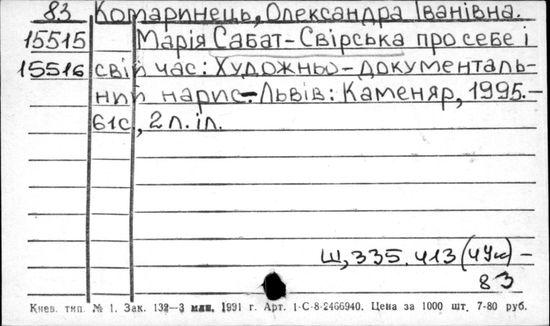 83 Комаринець, Олександра Іванівна.
15515 Марія Сабат-Свірська про себе і
15516 свій час: Художньо-документаль-
ний нарис.-Львів: Каменяр, 1995.-
61с., 2 л. іл.
Ш,335.413(4Ук)-
83
Киев. тип. № 1. Зак. 132—3 млн, 1991 г. Арт. 1-С-8-2466940. Цена за 1000 шт. 7-80 руб.